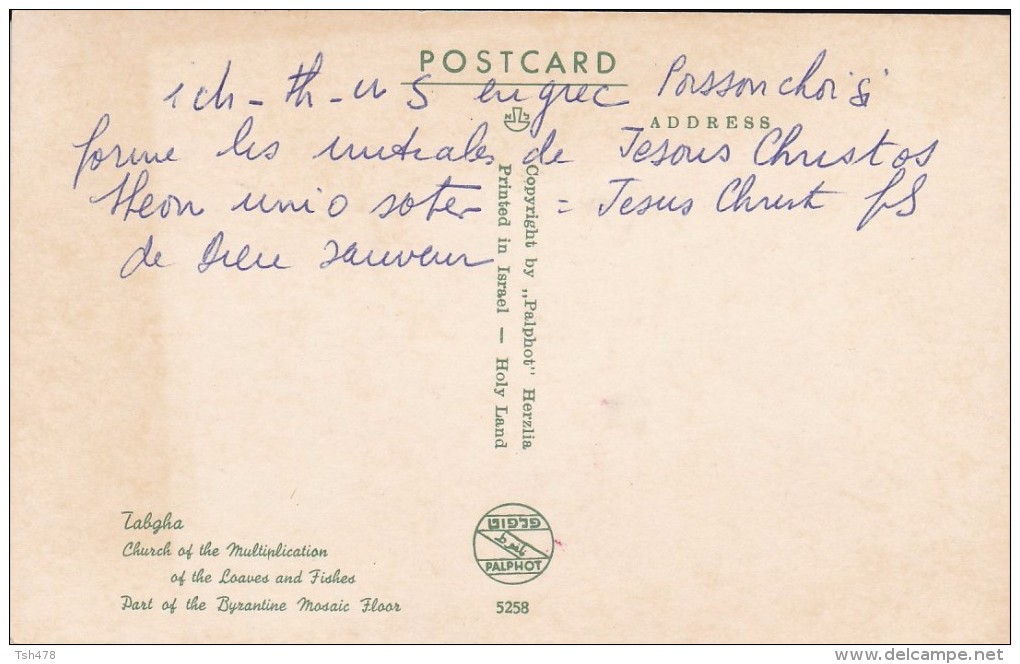 POSTCARD
ich-th-u s en grec Poisson choisi
ADDRESS
forme les initiales de Jesous Christos
theon unio soter = Jesus Christ fils
de Dieu sauveur
Copyright by „Palphot" Herzlia
Printed in Israel — Holy Land
Tabgha
Church of the Multiplication
of the Loaves and Fishes
Part of the Byzantine Mosaic Floor
פלפוט
PALPHOT
5258
Tsh478
www.delcampe.net